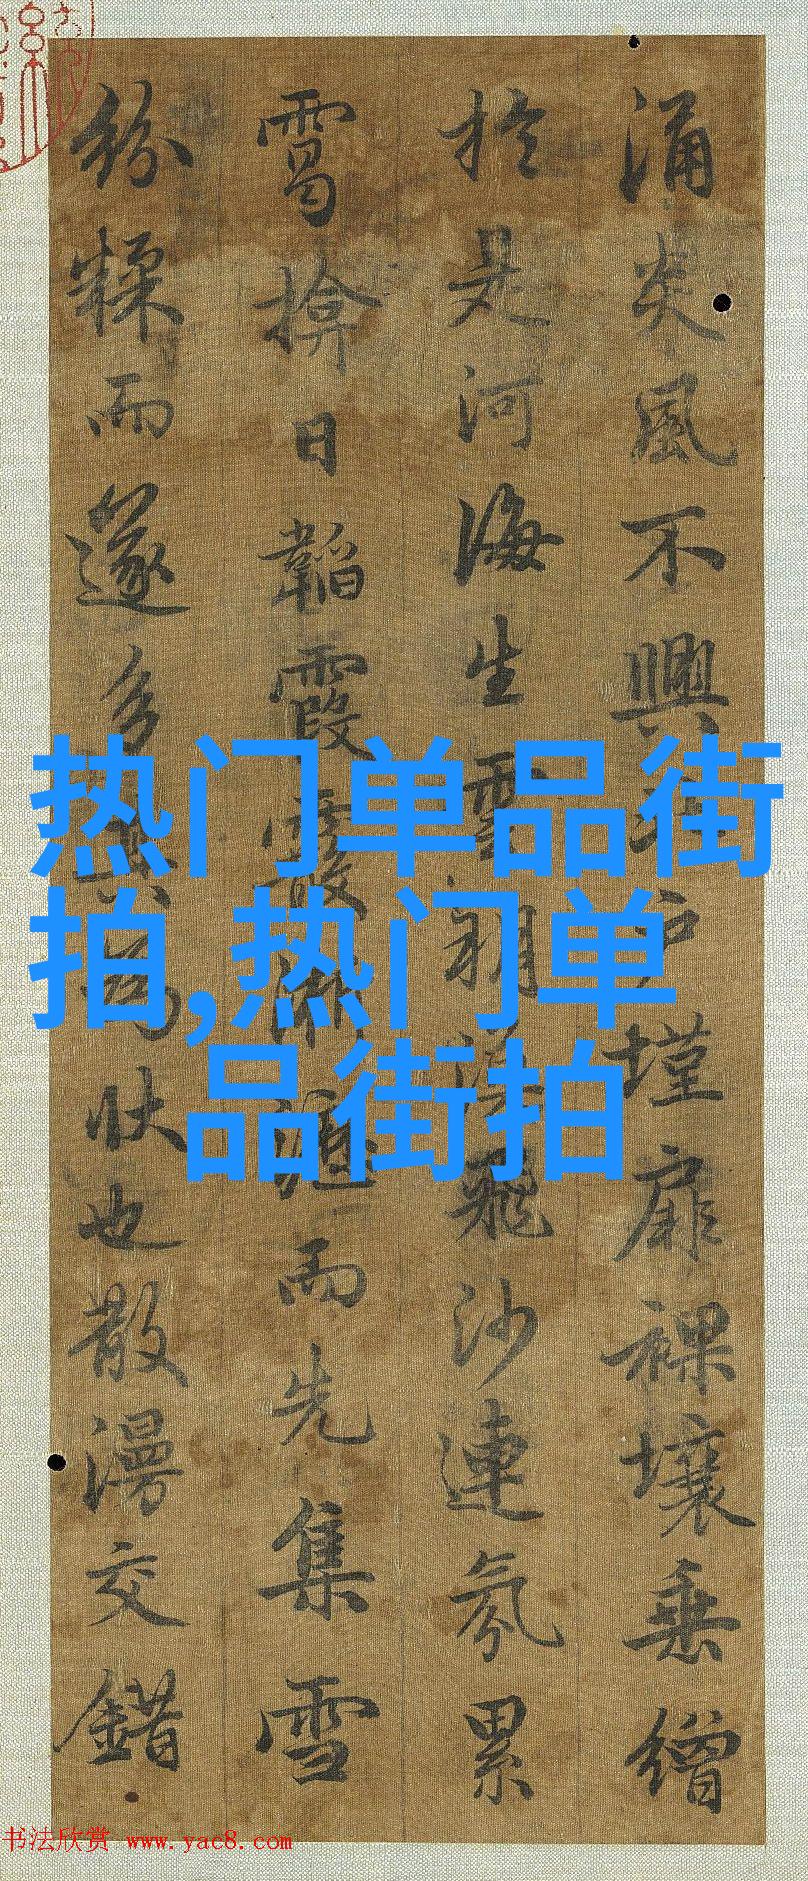 涌炎風不興北户墐扉裸壤垂繒
於是河海生雲朔漠飛沙連氛累
靄揜日韜霞霰淅瀝而先集雪
紛糅而遂多其為狀也散漫交錯
热门单品街
拍,热门单
品街拍
书法欣赏 www.yac8.com